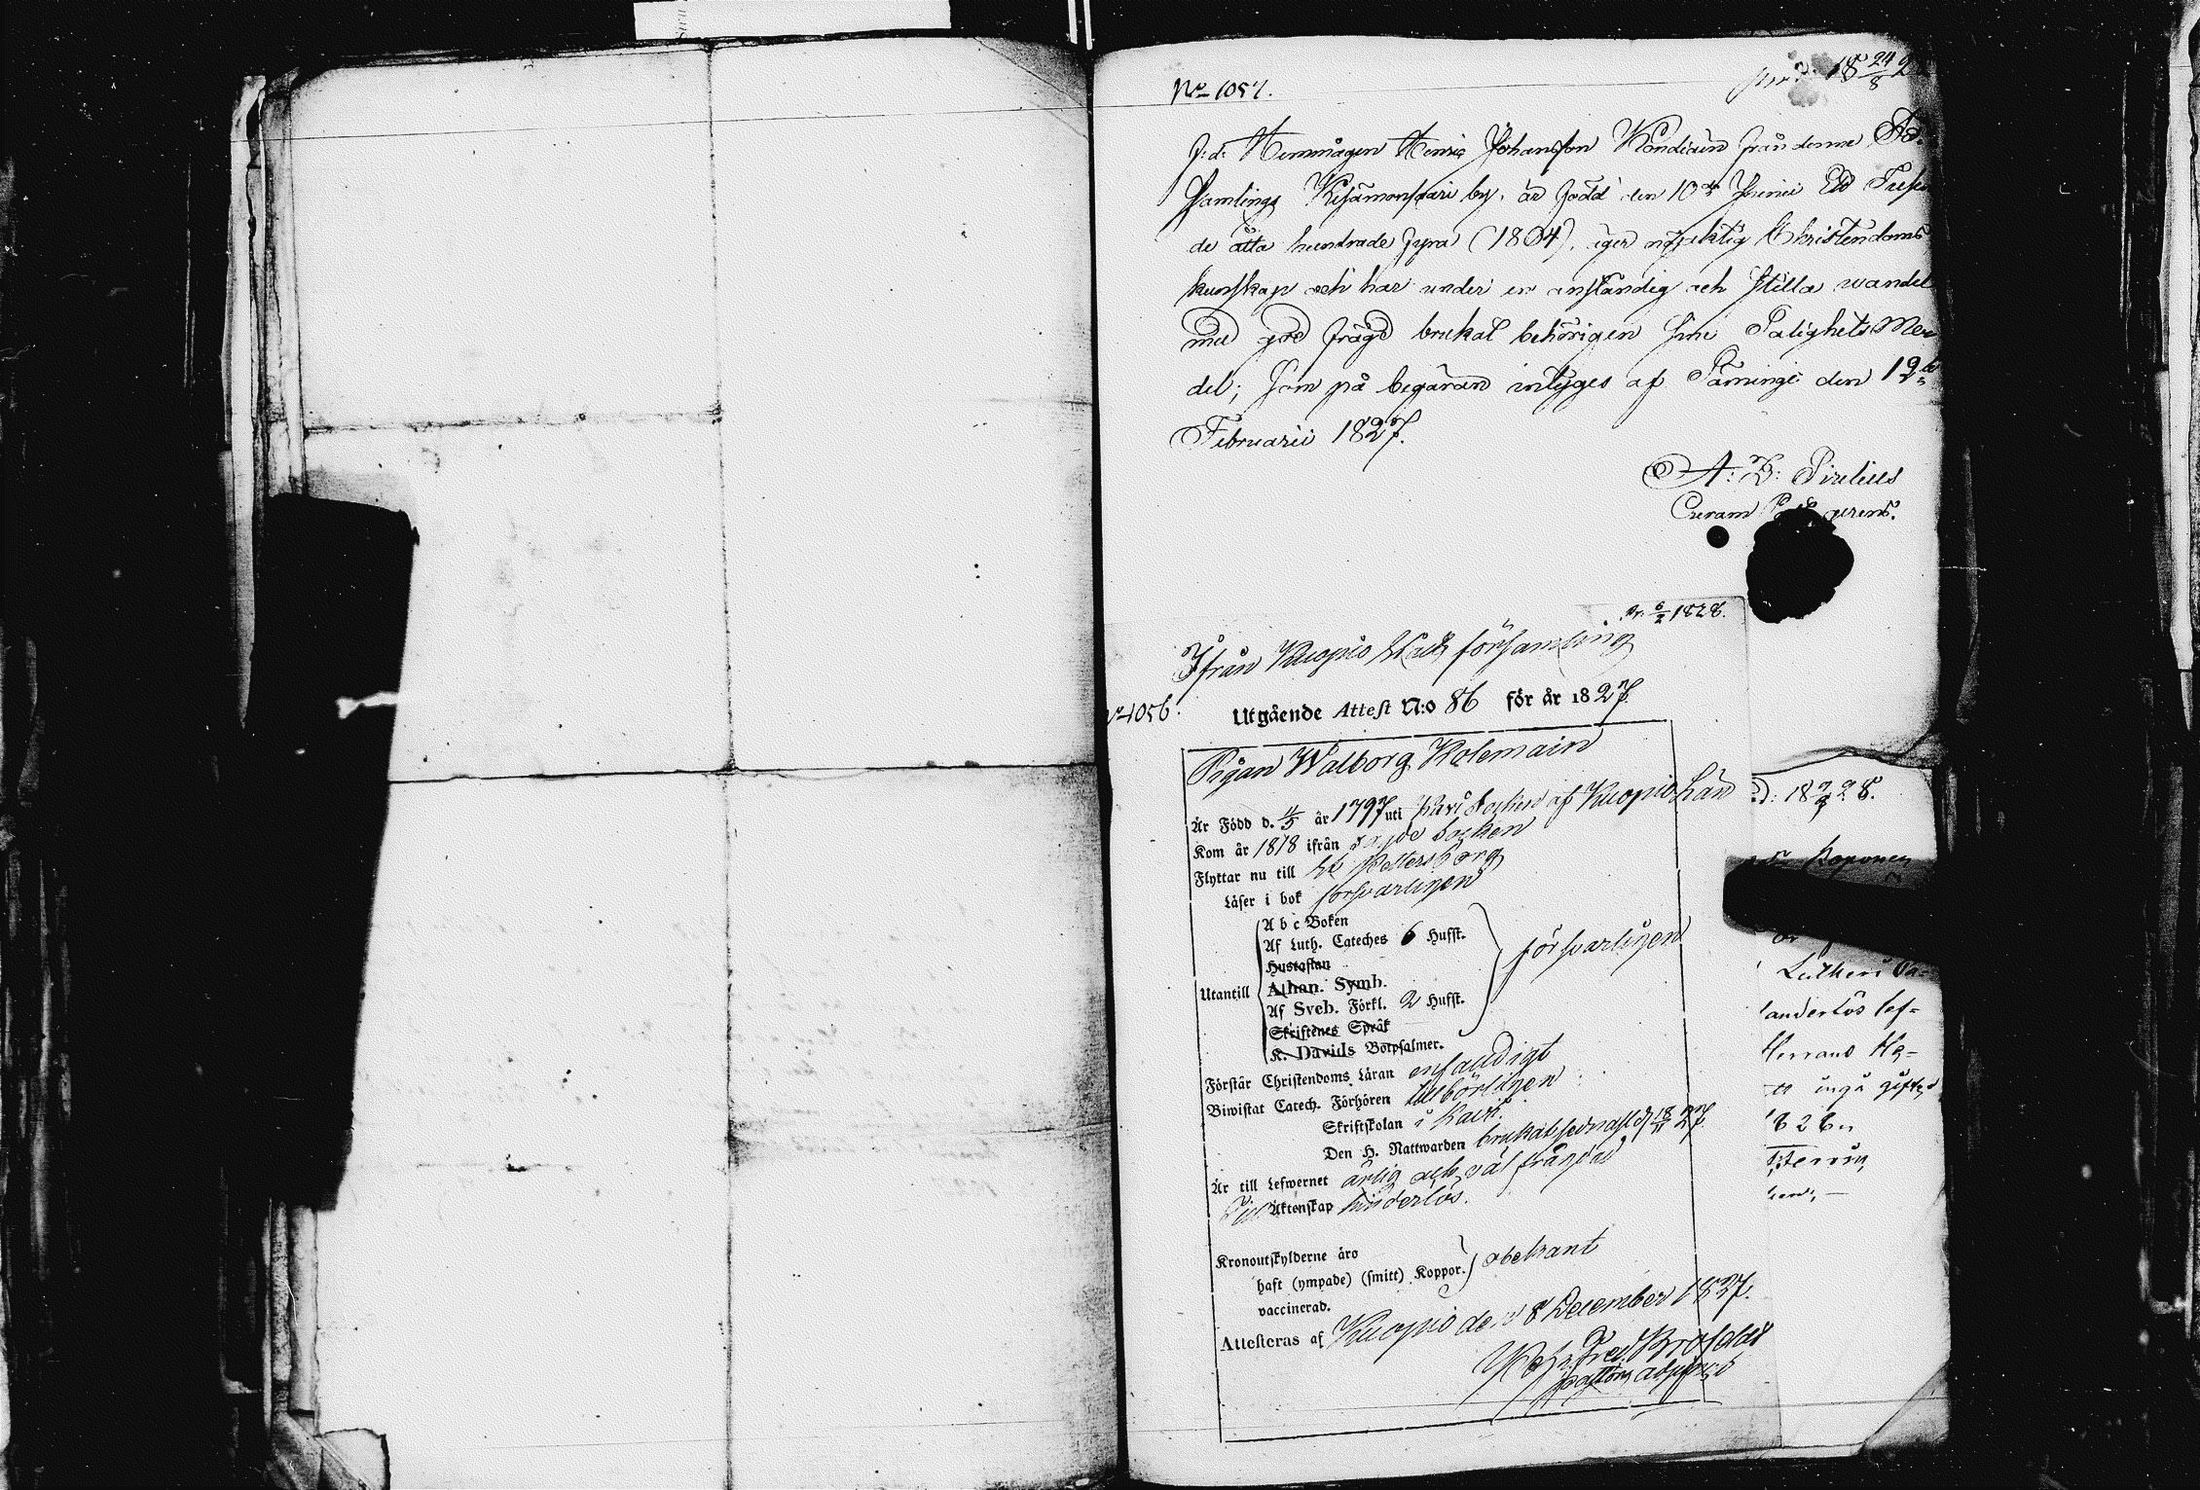 No 1057.
18 24/8 2
f.d. Hemmågen Henric Johansson Kondiain från denne För-
samlings Kesämonsaari by, är född den 10de Junii Ett Tusen
de åtta hundrade fyra (1804), äger nöjaktig Christendoms
kunskap och har under en anständig och stilla wandel
med god frägd brukat behörigen sine Salighets Me-
del; som på begäran intygas af Säminge den 12te
Februarii 1827.
A: D: Pirelius
Curam gerens.
Pr. 6/2 1828.
Ifrån Kuopio Stads församling
No 1056.
Utgående Attest N:o 86 för år 1827.
Pigan Walborg Kolemain
Är Född d. 4/5 år 1797 uti Kavi Socken af Kuopio Län
Kom år 1818 ifrån Socken
Flyttar nu till St Pettersborg
Läser i bok försvarligen
Utantill
A b c Boken
Af Luth. Cateches 6 Hufst.
Hustaflan
Athan. Symb.
Af Sveb. Förkl. 2 Hufst.
Skriftenes Språk
K. Davids Botpsalmer.
försvarligen
Förstår Christendoms Läran enfaldigt
Biwistat Catech. Förhören tillbörligen
Skriftskolan i Kavi.
Den H. Nattwarden brukat sednast d. 18/11 27.
Är till Lefwernet ärlig och väl frägdad
Till Äktenskap hinderlös.
Kronoutskylderne äro
haft (ympade) (smitt) Koppor.
vaccinerad.
obekant
Attesteras af Kuopio den 8 December 1827.
Joh. Fred. Brofeldt
pastors adjunct
d: 18 7/2 28.
Koponen
Lutheri Ca-
landerlös lef-
Herrans He-
tt ingå gifte
1828.